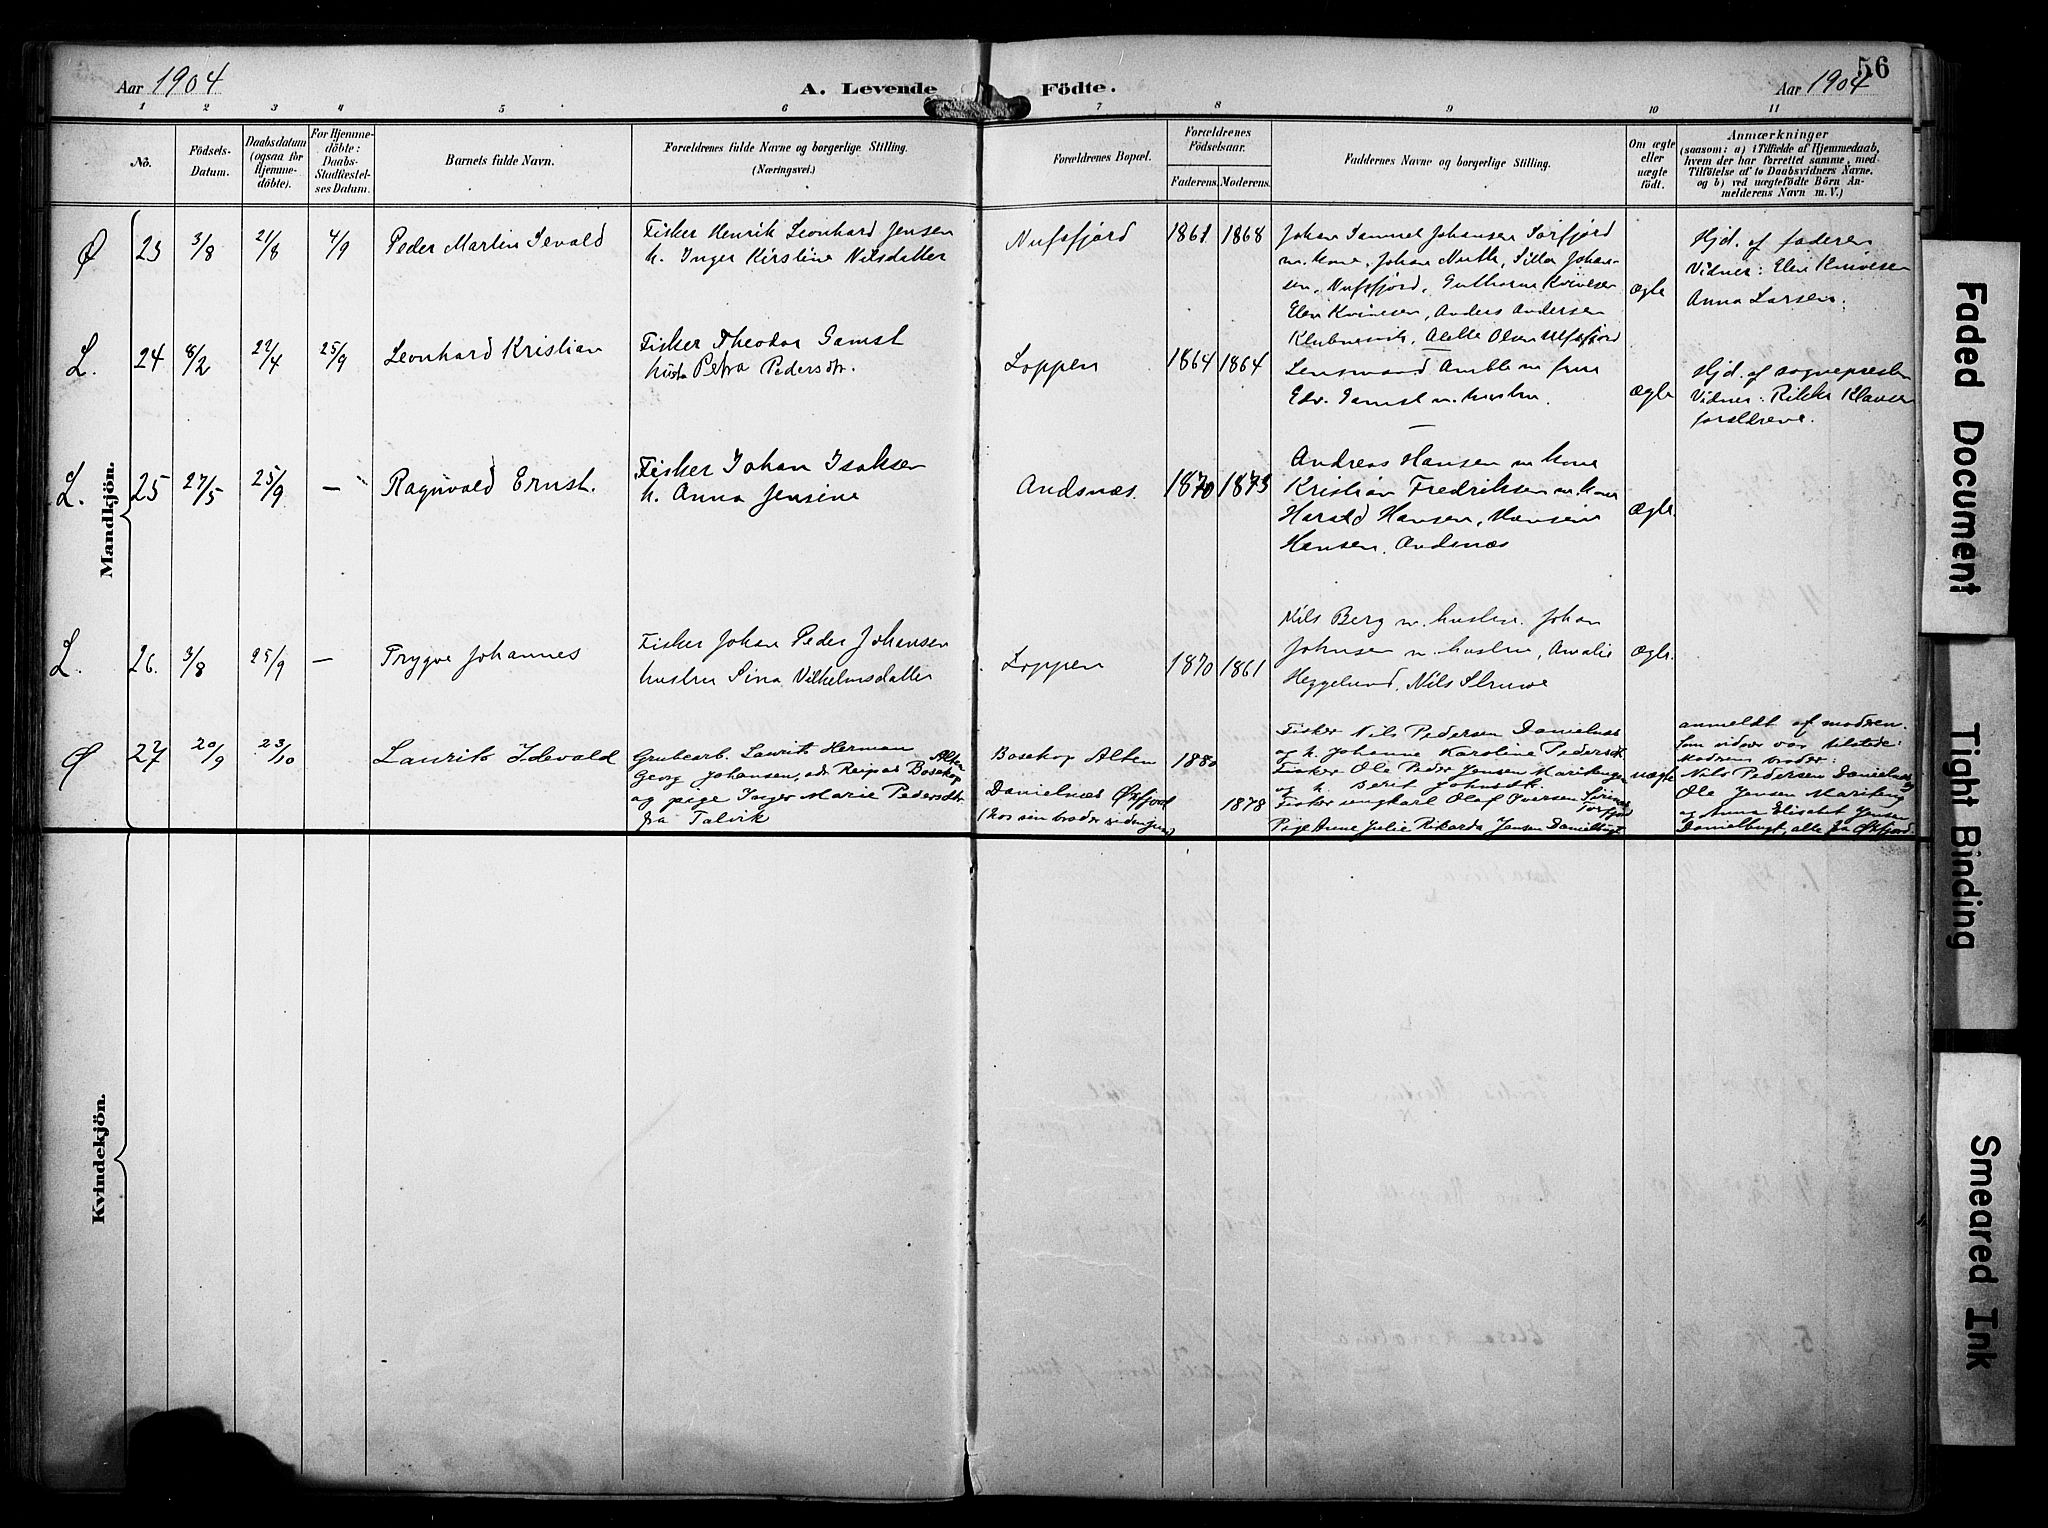 56
Aar 1904
A. Levende Födte.
Aar 1904
1 2 3 4 5 6 7 8 9 10 11
No.
Födsels-
Datum.
Daabsdatum
(ogsaa for
Hjemme-
döbte).
For Hjemme-
döbte:
Daabs-
Stadfæstel-
ses Datum.
Barnets fulde Navn.
Forældrenes fulde Navne og borgerlige Stilling.
(Næringsvei.)
Forældrenes Bopæl.
Forældrenes
Födselsaar.
Faderens. Moderens.
Faddernes Navne og borgerlige Stilling.
Om ægte
eller
uægte
födt.
Anmærkninger
(saasom: a) i Tilfælde af Hjemmedaab,
hvem der har forrettet samme, med
Tilföielse af to Daabsvidners Navne,
og b) ved uægtefödte Börn An-
melderens Navn m. V.)
Mandkjön.
Ø 23 3/8 21/8 4/9
Peder Martin Sevald
Fisker Henrik Leonhard Jensen
h. Inger Kirstine Nilsdatter
Nufsfjord
1861 1868
Johan Samuel Johansen Sörfjord
m. kone, Johan Nuth, Silla Johan-
sen, Nufsfjord,
Elen Anders Andersen
Olsen
ægte
Hjd. af faderen
Vidner: Elen
Anna Larsen.
L. 24 8/2 22/4 25/9
Leonhard Kristian
Fisker Theodor Gamst
hustru Petra Pedersdtr.
Loppen
1864 1864
Lensmand m. frue
Edv. Gamst m. hustru.
ægte
Hjd. af sognepresten
Vidner: Rikka Klausen
forældrene.
L. 25 27/5 25/9 —
Ragnvald Ernst.
Fisker Johan Isaksen
h. Anna Jensine
Andsnæs.
1870 1873
Andreas Hansen m. kone
Kristian Fredriksen m. kone
Harald Hansen, Hansine
Hansen, Andsnæs
Ægte.
L. 26. 3/8 25/9 —
Trygve Johannes
Fisker Johan Peder Johansen
hustru Sina Vilhelmsdatter
Loppen
1870 1861
Nils Berg m. hustru. Johan
Johnsen m. hustru, Amalie
Heggelund, Nils Struve
Ægte.
Ø 27 20/9 23/10
Laurits Idevald
Grubearb. Laurits Herman
Georg Johansen, adr. Reipas Bosekop Alten
og pige Inger Marie Pedersdtr.
fra Talvik
Bosekop Alten
Danielnæs Øxfjord
(hos sin broder
1880
1878
Fisker Nils Pedersen Danielnæs
og h. Johanne Karoline Pedersdtr.
Fisker Ole Peder Jensen Marikeng
og h. Berit Johnsdtr.
Fisker ungkarl Olaf Iversen
Pige Anne Julie Rikarda Jensen Danielbugt
uægte
anmeldt af modren.
Som vidner var tilstede:
Moderens broder:
Nils Pedersen Danielnæs
Ole Jensen Marikeng
og Anna Elisabet Jensen
Danielbugt, alle fra Øxfjord.
Kvindekjön.
Faded Document
Tight Binding
Smeared Ink